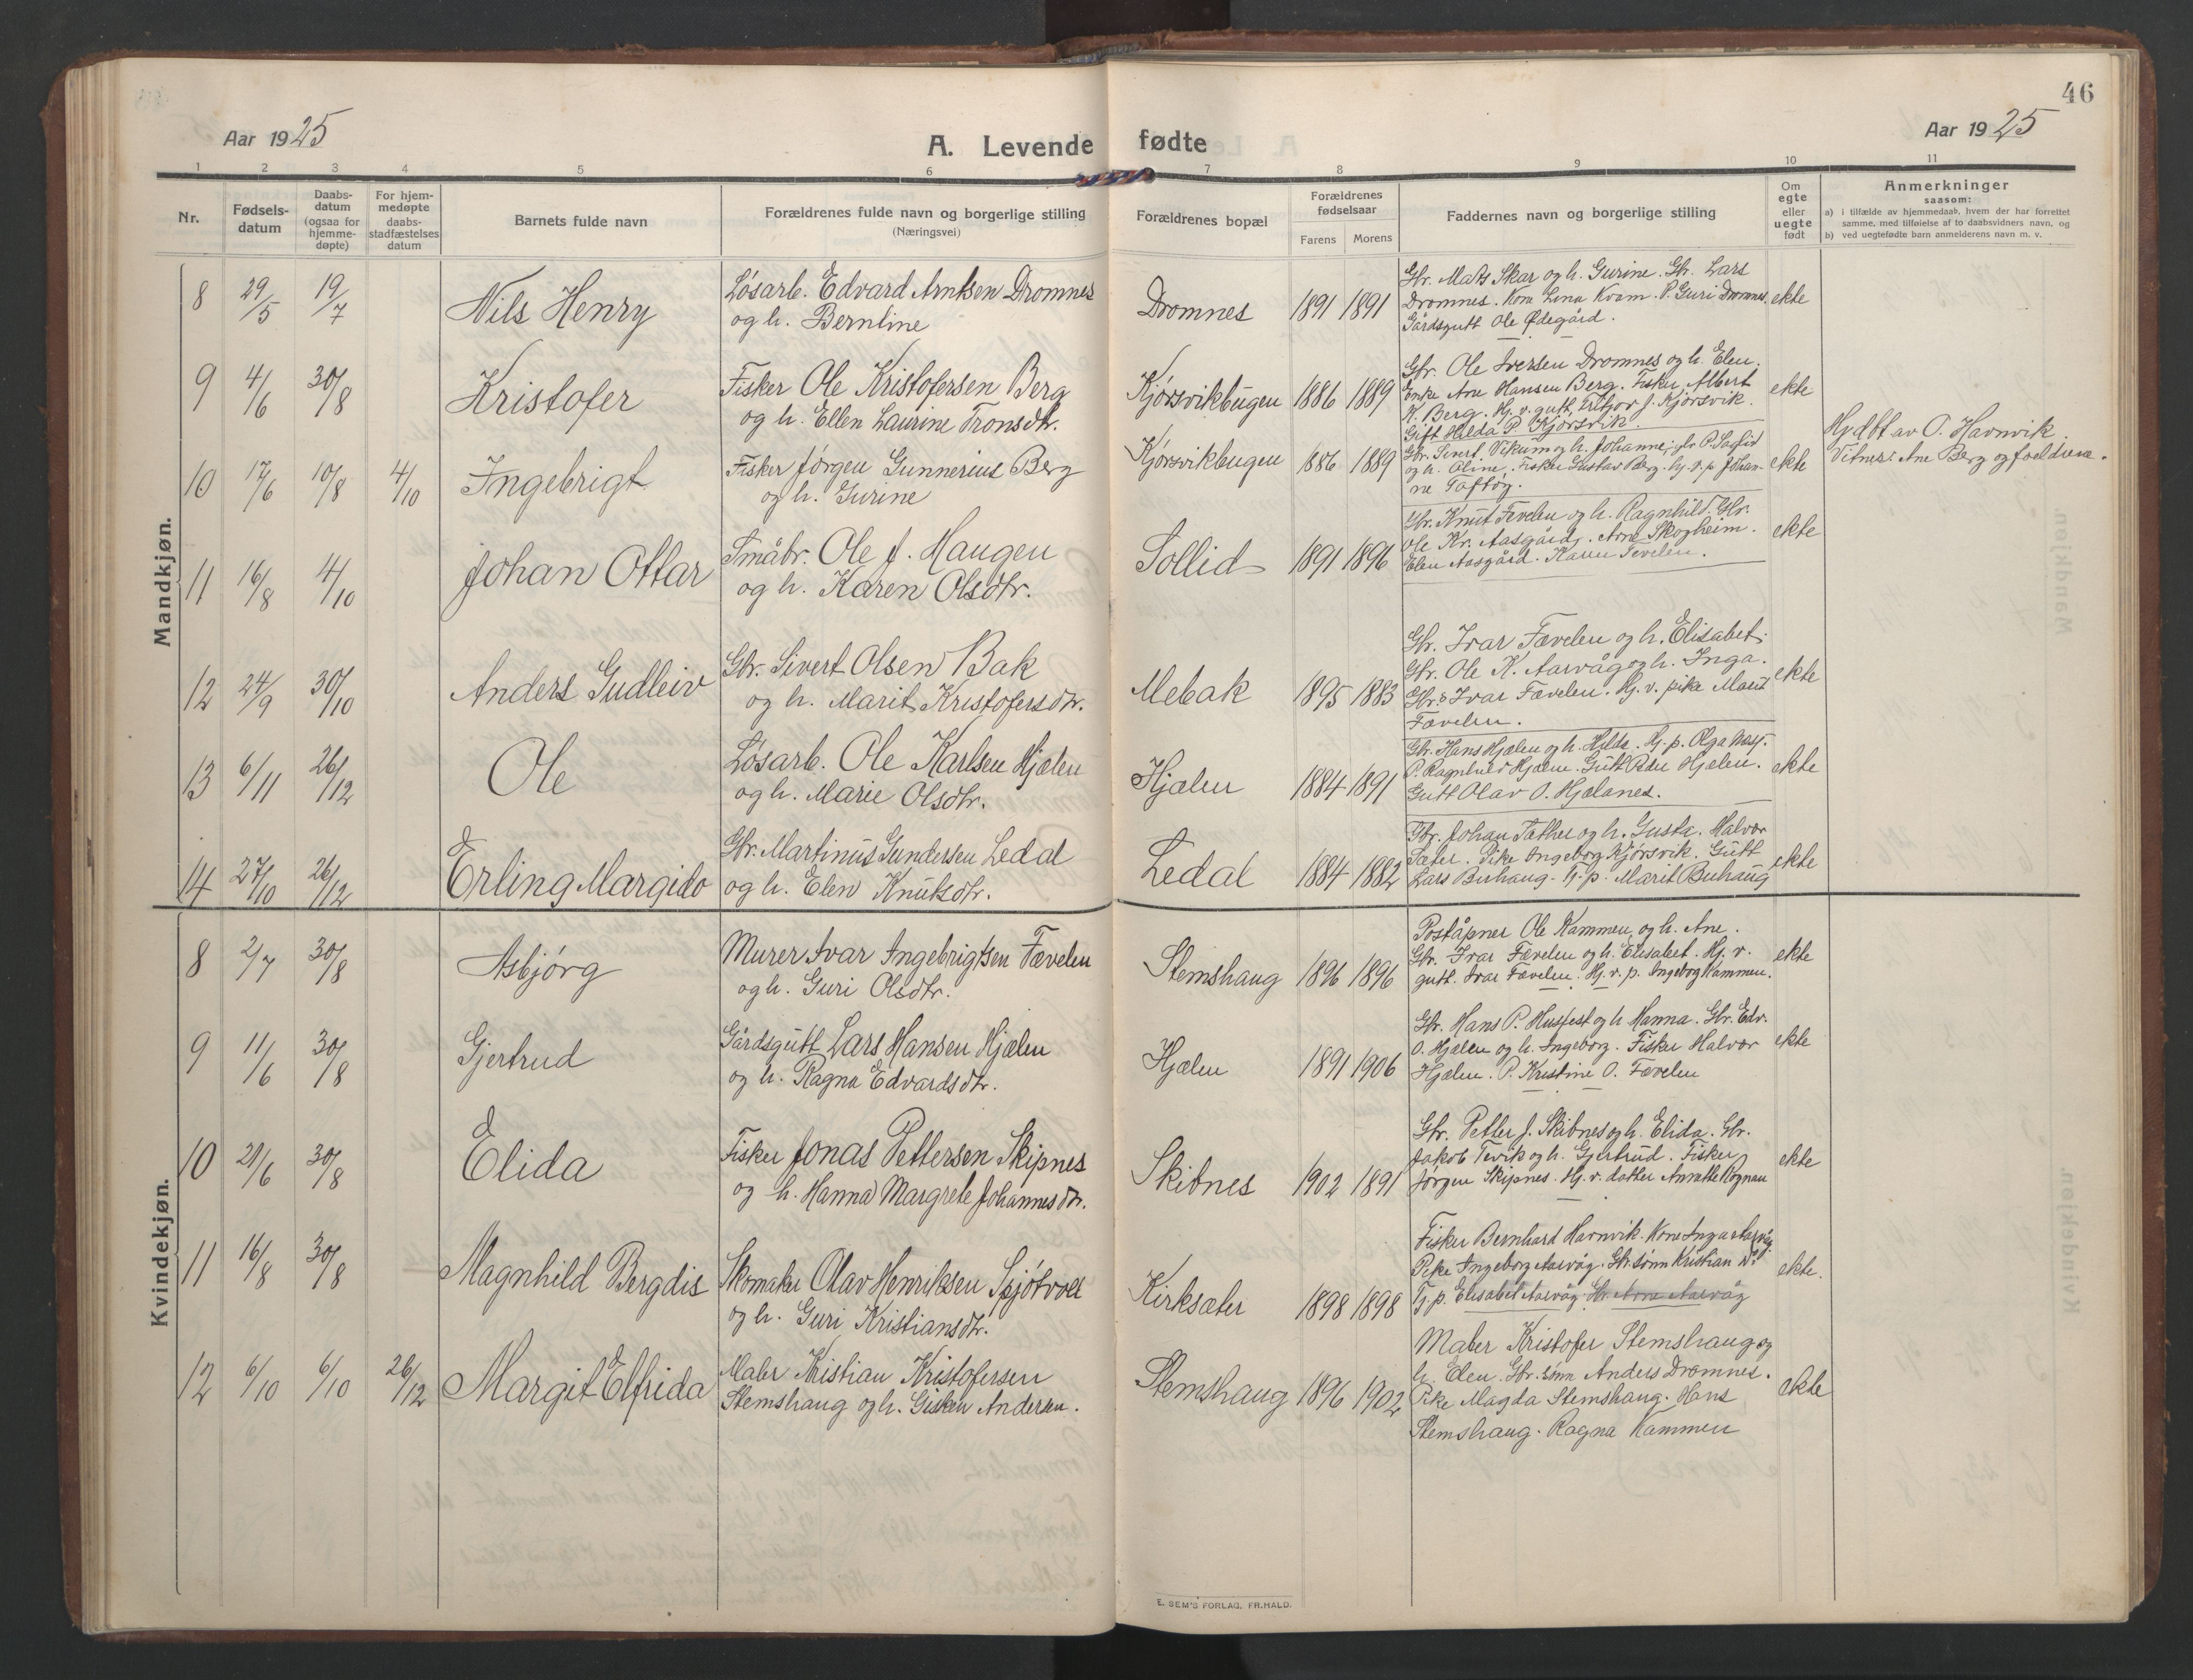 46
Aar 1925
A. Levende fødte
Aar 1925
1 2 3 4 5 6 7 8 9 10 11
Nr.
Fødsels-
datum
Daabs-
datum
(ogsaa for
hjemme-
døpte)
For hjem-
medøpte
daabs-
stadfæstelses
datum
Barnets fulde navn
Forældrenes fulde navn og borgerlige stilling
(Næringsvei)
Forældrenes bopæl
Forældrenes
fødselsaar
Farens Morens
Faddernes navn og borgerlige stilling
Om
egte
eller
uegte
født
Anmerkninger
saasom:
a) i tilfælde av hjemmedaab, hvem der har forrettet
samme, med tilføielse af to daabsvidners navn, og
b) ved uegtefødte barn anmelderens navn m. v.
Mandkjøn.
8 29/5 19/7 Nils Henry
Løsarb. Edvard Arntsen Dromnes
og h. Berntine
Dromnes 1891 1891
Gbr. Mats Skar og h. Gurine. Gbr. Lars
Dromnes. Kone Lina Kvam. P. Guri Dromnes.
Gårdsgutt Ole Ødegård.
ekte
9 4/6 30/8 Kristofer
Fisker Ole Kristofersen Berg
og h. Ellen Laurine Tronsdtr.
Kjørsvikbugen 1886 1889
Gbr. Ole Iversen Dromnes og h. Elen.
Enke Ane Hansen Berg. Fisker Albert
K. Berg. Hj. v. gutt J. Kjørsvik.
Gift Hilda P. Kjørsvik.
ekte
10 17/6 10/8 4/10 Ingebrigt
Fisker Jørgen Gunnerius Berg
og h. Gurine
Kjørsvikbugen 1886 1889
Gbr. Sivert Vikum og h. Johanne; gbr. P.
og h. Oline, Fisker Gustav Berg. hj. v. p. Johan-
ne Taftøy.
ekte
Hj.dbt av O. Havnvik
Vitner: Ane Berg og foreldrene.
11 16/8 4/10 Johan Ottar
Småbr. Ole J. Haugen
og h. Karen Olsdtr.
Sollid 1891 1896
Gbr. Knut Fevelen og h. Ragnhild. Gbr.
Ole Kr. Aasgård. Arne Skogheim.
Elen Aasgård. Karen Fevelen.
ekte
12 24/9 30/10 Anders Gudleiv
Gbr. Sivert Olsen Bak
og h. Marit Kristofersdtr.
Mebak 1895 1883
Gbr. Ivar Fævelen og h. Elisabet.
Gbr. Ole K. Aarvåg og h. Inga.
Gbr.s Ivar Fævelen. Hj. v. pike Marit
Fævelen.
ekte
13 6/11 26/12 Ole
Løsarb. Ole Karlsen Hjælen
og h. Marie Olsdtr.
Hjælen 1884 1891
Gbr. Hans Hjælen og h. Hilda. Hj. p. Olga
P. Ragnhild Hjælen. Gutt Peder Hjælen.
Gutt Olav O. Hjælanes.
ekte
14 27/10 26/12 Erling Margido
Gbr. Martinus Gundersen Ledal
og h. Elen Knutsdtr.
Ledal 1884 1882
Gbr. Johan og h. Gusta. Halvor
Sæter. Pike Ingeborg Kjørsvik. Gutt
Lars Buhaug. Tj. p. Marit Buhaug
ekte
Kvindekjøn.
8 2/7 30/8 Asbjørg
Murer Ivar Ingebrigtsen Fævelen
og h. Guri Olsdtr.
Stemshaug 1896 1896
Poståpner Ole Kammen og h. Ane.
Gbr. Ivar Fævelen og h. Elisabet. Hj. v.
gutt. Ivar Fævelen. Hj. v. p. Ingeborg Kammen.
ekte
9 11/6 30/8 Gjertrud
Gårdsgutt Lars Hansen Hjælen
og h. Ragna Edvardsdtr.
Hjælen 1891 1906
Gbr. Hans P. Husfest og h. Hanna. Gbr. Edv.
O. Hjælen og h. Ingeborg. Fisker Halvor
Hjælen. P. Kristine O. Fævelen
ekte
10 20/6 30/8 Elida
Fisker Jonas Pettersen Skipnes
og h. Hanna Margrete Johannesdtr.
Skibnes 1902 1891
Gbr. Petter J. Skibnes og h. Elida. Gbr.
Jakob Tevik og h. Gjertrud. Fisker
Jørgen Skipnes. Hj. v. datter Rognan
ekte
11 16/8 30/8 Magnhild Bergdis
Skomaker Olav Henriksen
og h. Guri Kristiansdtr.
Kirksæter 1898 1898
Fisker Bernhard Havnvik. Kone Inga Aarvåg.
Pike Ingeborg Aarvåg. Gbr. sønn Kristian do
Tj. p. Elisabet Aarvåg. Gbr. Arne Aarvåg
ekte.
12 6/10 6/10 26/12 Margit Elfrida
Maler Kristian Kristofersen
Stemshaug og h. Gisken Andersen.
Stemshaug 1896 1902
Maler Kristofer Stemshaug og
h. Elen. Gbr. sønn Anders Dromnes.
Pike Magda Stemshaug. Hans
Stemshaug. Ragna Kammen
ekte
E. SEM'S FORLAG, FR.HALD.